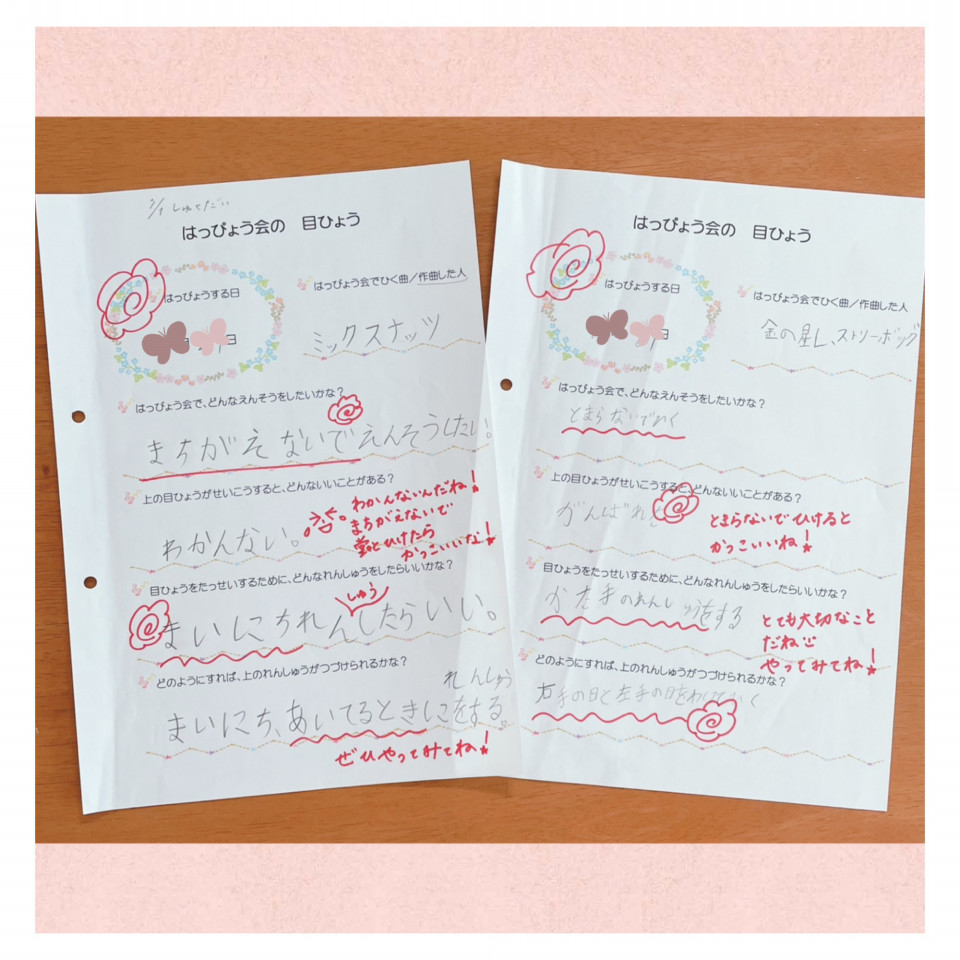 しゅくだい
はっぴょう会の 目ひょう
はっぴょうする日
日
はっぴょう会でひく曲/作曲した人
ミックスナッツ
はっぴょう会で、どんなえんそうをしたいかな?
まちがえないでえんそうしたい!
上の目ひょうがせいこうすると、どんないいことがある?
わかんない。
わかんないんだね!
まちがえないで
堂とひけたら
かっこいいな!
目ひょうをたっせいするために、どんなれんしゅうをしたらいいかな?
しゅう
まいにちれんしたらいい。
どのようにすれば、上のれんしゅうがつづけられるかな?
れんしゅう
まいにち、あいてるときにをする。
ぜひやってみてね!
はっぴょう会の 目ひょう
はっぴょうする日
日
はっぴょう会でひく曲/作曲した人
金の星L、ストリーボッグ
はっぴょう会で、どんなえんそうをしたいかな?
とまらないでひく
上の目ひょうがせいこうすると、どんないいことがある?
がんばれ
とまらないでひけると
かっこいいね!
目ひょうをたっせいするために、どんなれんしゅうをしたらいいかな?
かた手のれんしゅうをする
とても大切なこと
だね
やってみてね!
どのようにすれば、上のれんしゅうがつづけられるかな?
右手の日と左手の日をわけてひく